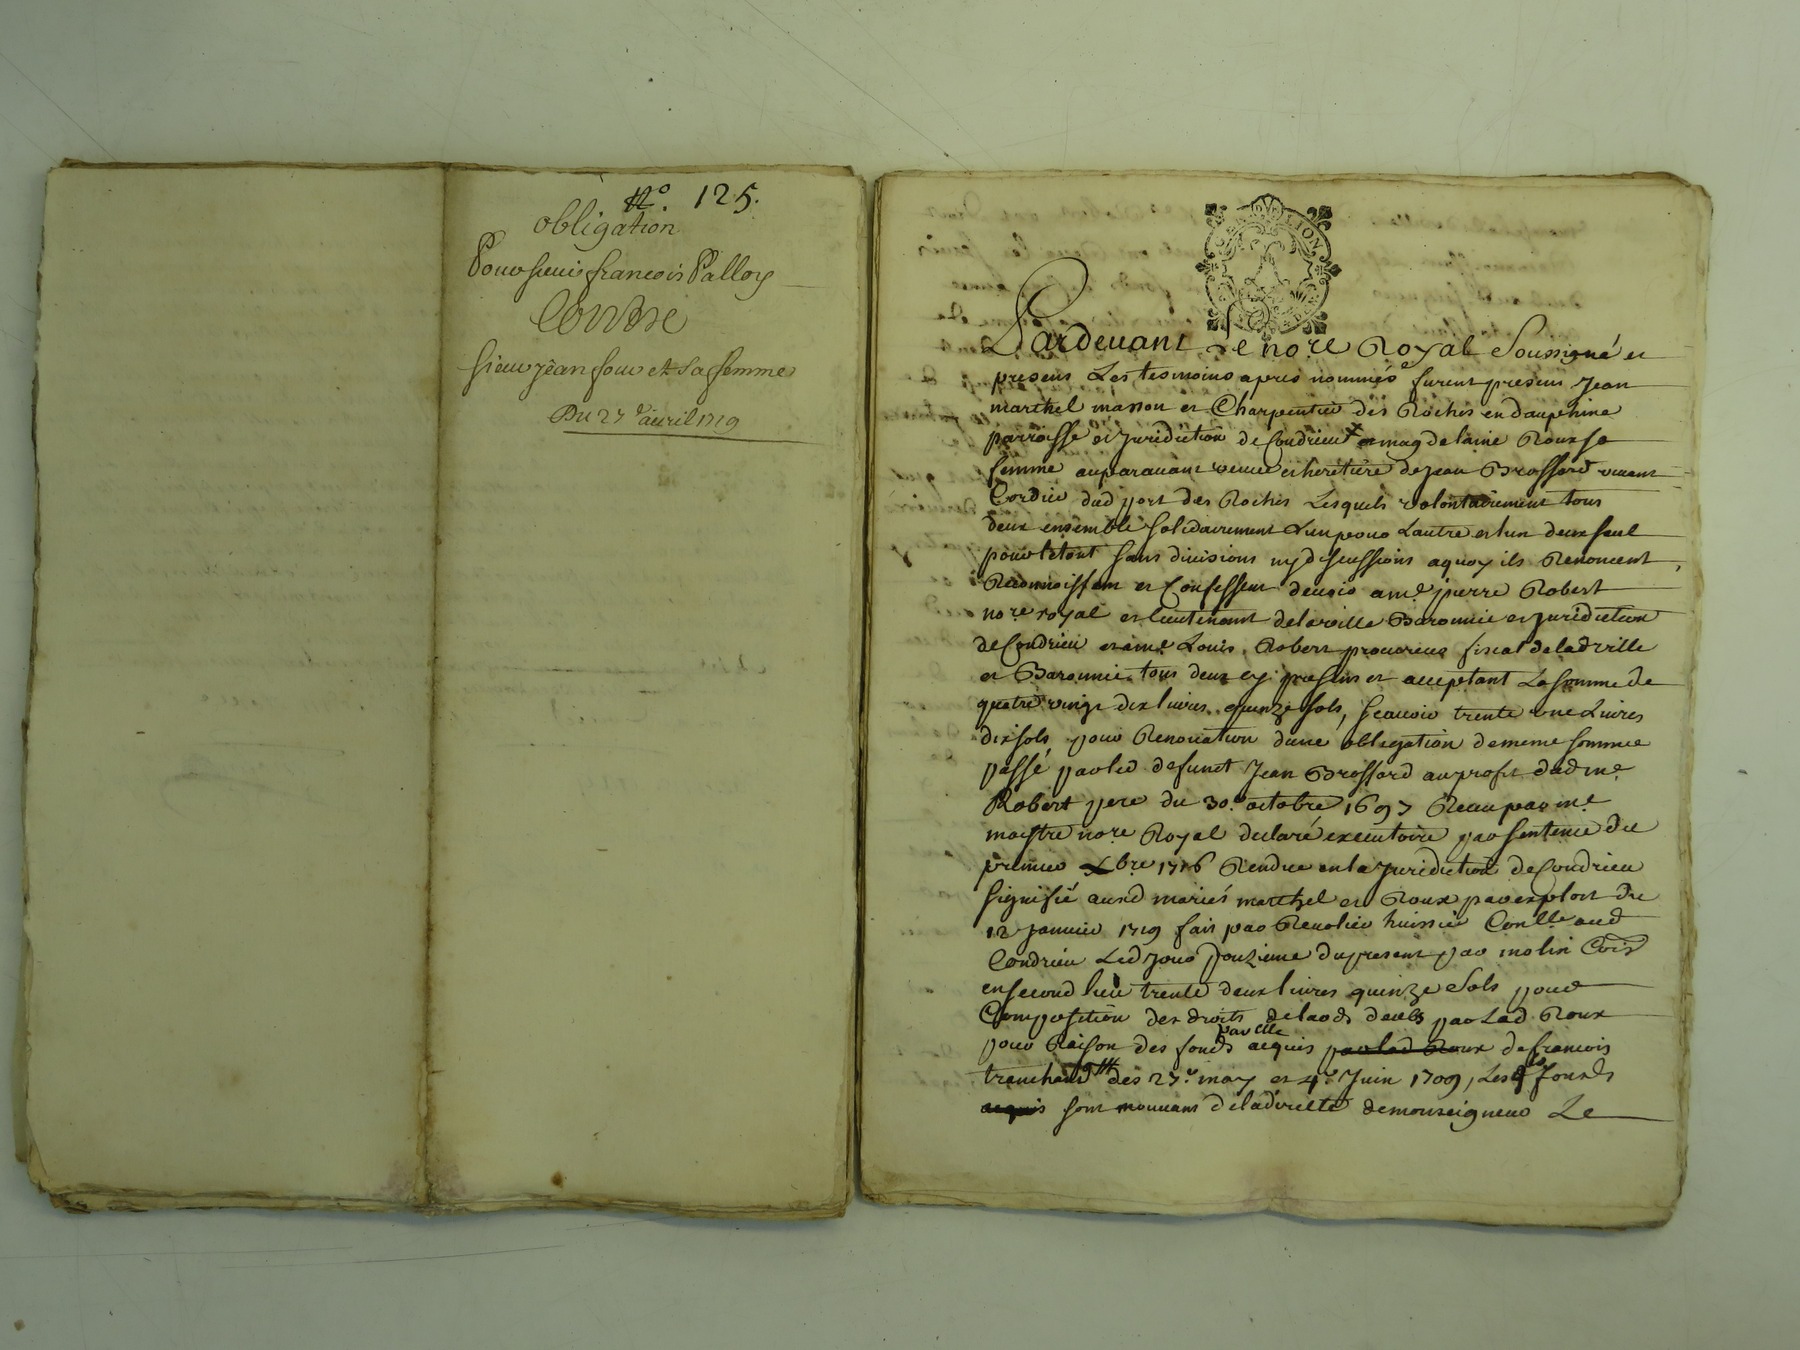 N.o 125.
obligation
Pour sieur francois Palloy
Contre
sieur jean four et sa femme
Du 27.e auril 1719
Pardeuant Le no.re Royal Soussigné et
presens Les tesmoins apres nommés furent presens Jean
marthel masson et Charpentier des Roches en dauphine
parroisse et Juridiction de Condrieu et magdelaine Roux sa
femme auparauant veuue et heretiere de jean Brossard viuant
Cordier dud port des Roches Lesquels volontairement tous
deux ensemble solidairement Lun pour Lautre et lun deux seul
pour le tout sans diuisions ny discussions a quoy ils Renoncent,
Reconnoissent et Confessent deuoir a m.e pierre Robert
no.re royal et lieutenant de la ville Baronnie et juridiction
de Condrieu et a me Louis Robert procureur fiscal de lad ville
et Baronnie tous deux cy presens et acceptant La somme de
quatre vingt dix liures quinze sols, scauoir trente une Liures
dix sols pour Renouation dune obligation de meme somme
passé par led defunct Jean Brossard au profit dud m.e
Robert pere du 30.e octobre 1697 Receu par m.e
maistre no.re Royal declaré executoire par sentence du
premier Xbre 1716 Rendue en la Juridiction de Condrieu
signifié ausd mariés marthel et Roux par exploit du
12 januier 1719 fait par huissier Con.lle aud
Condrieu Led jour du present par molin
en second lieu trente deux liures quinze sols pour
Composition des droits de laods deubs par Lad Roux
pour Raison des fonds par elle acquis par lad Roux de francois
tranchand des 27.e may et 4.e Juin 1709, Lesd fonds
acquis sont mouuans de la directe de monseigneur Le